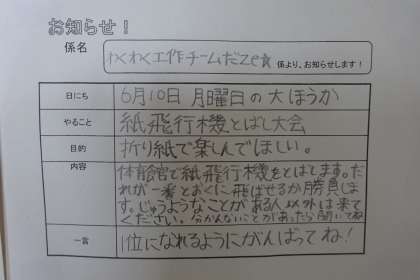 お知らせ！
係名
わくわく工作チームだze☆
係より、お知らせします！
日にち
6月10日 月曜日の大ほうか
やること
紙飛行機とばし大会
目的
折り紙で楽しんでほしい。
内容
体育館で紙飛行機をとばします。だ
れが一番とおくに飛ばせるか勝負しま
す。じゅうようなことがある人以外は来て
ください。分かんないことがあったら聞いてね
一言
1位になれるようにがんばってね！